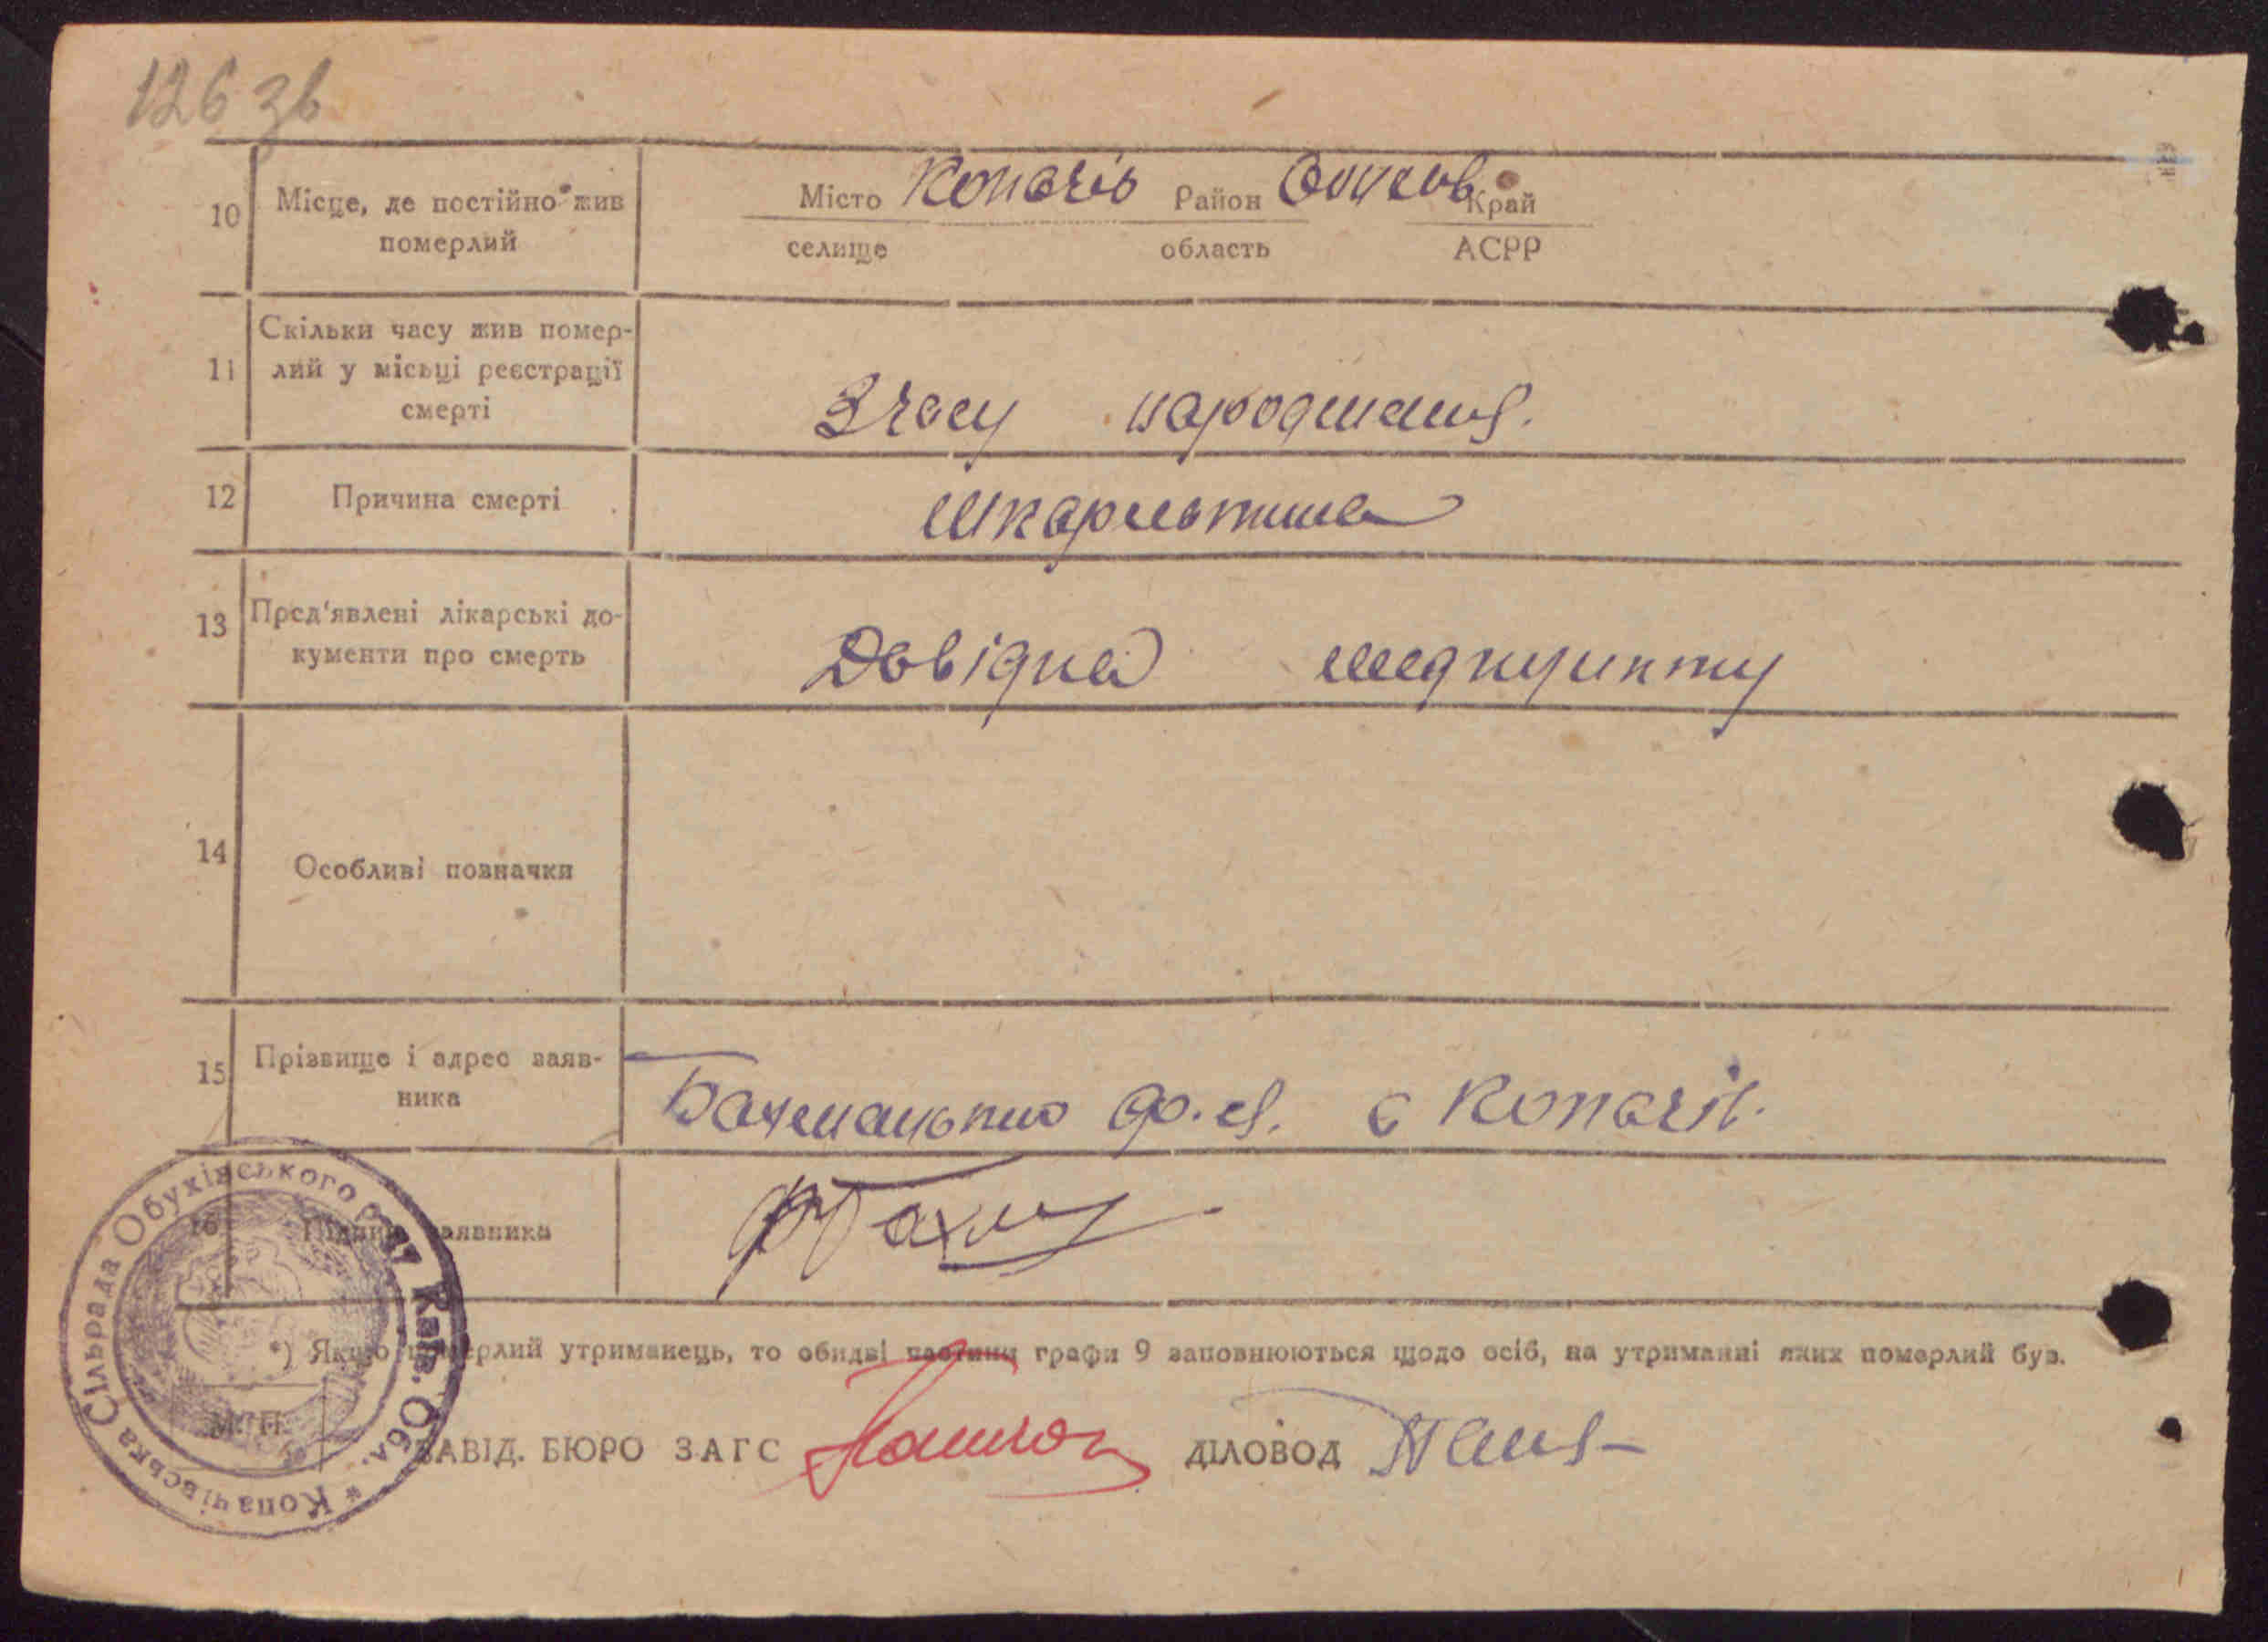 126 зв
10 Місце, де постійно жив померлий
Місто Копачів Район Обухів Край
селище область АСРР
11 Скільки часу жив помер-
лий у місьці реєстрації
смерті
З часу народження.
12 Причина смерті Шкарльтина
13 Пред'явлені лікарські до-
кументи про смерть
Довідка медпункту
14 Особливі позначки
15 Прізвище і адрес заяв-
ника
с Копачів.
16 Підпис заявника
*) Якщо померлий утриманець, то обидві частини графи 9 заповнюються щодо осіб, на утриманні яких померлий був.
М. П.
ЗАВІД. БЮРО ЗАГС ДІЛОВОД
Копачівська Сільрада Обухівського р-ну Київ. Обл. *